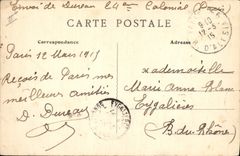 Envoi de Dureau 24ème Colonial (Paris)
CARTE POSTALE
Correspondance
Paris 12 Mars 1915
Reçois de Paris mes
meilleurs amitiés
D. Dureau
Mademoiselle
Marie Anne Blanc
Eygalières
(B. du Rhône)
EYGALIÈRES